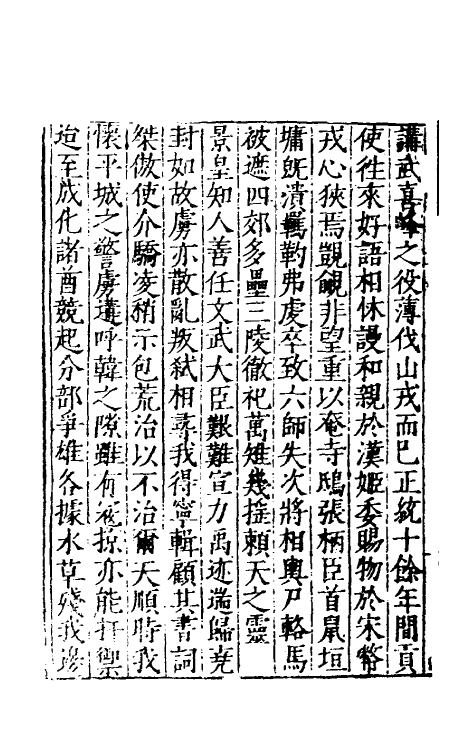 講武喜峰之役薄伐山戎而已正統十餘年間貢
使往來好語相休謾和親於漢姬委賜物於宋幣
戎心狹焉覬覦非望重以奄寺鴟張柄臣首鼠垣
墉既潰羈靮弗虔卒致六師失次將相輿尸輅馬
被遮四郊多壘三陵徹祀萬雉幾搖賴天之靈
景皇知人善任文武大臣艱難宣力禹迹湍歸堯
封如故虜亦散亂叛弒相尋我得寧輯顧其書詞
桀傲使介驕凌稍示包荒治以不治爾天順時我
懷平城之警虜遺呼韓之隙雖有寇掠亦能扞禦
迨至成化諸酋競起分部爭雄各據水草殘我邊